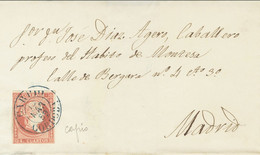 Sor Dn Jose Diaz Agero, Caballero
profeso del Habito de Montesa
Calle de Bergara nº 4 cto 3º
Madrid
carpio
4 CUARTOS